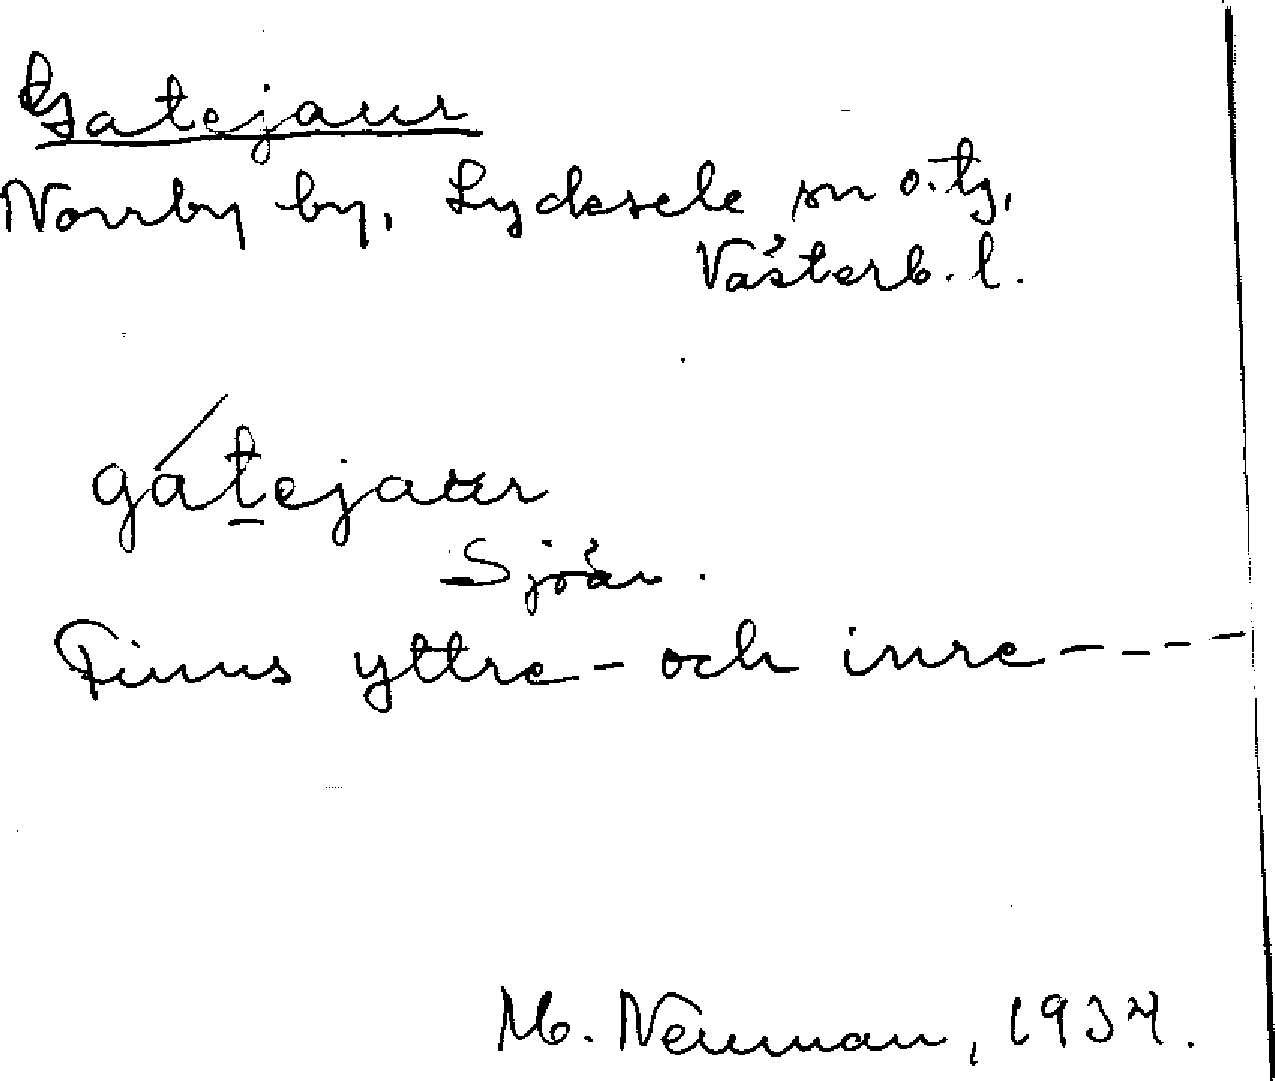 Gatejaur
Norrby by, Lycksele sn o. tg,
Västerb. l.
gátejaur
Sjöar.
Finns yttre - och inre - - - -
M. Neuman, 1934.